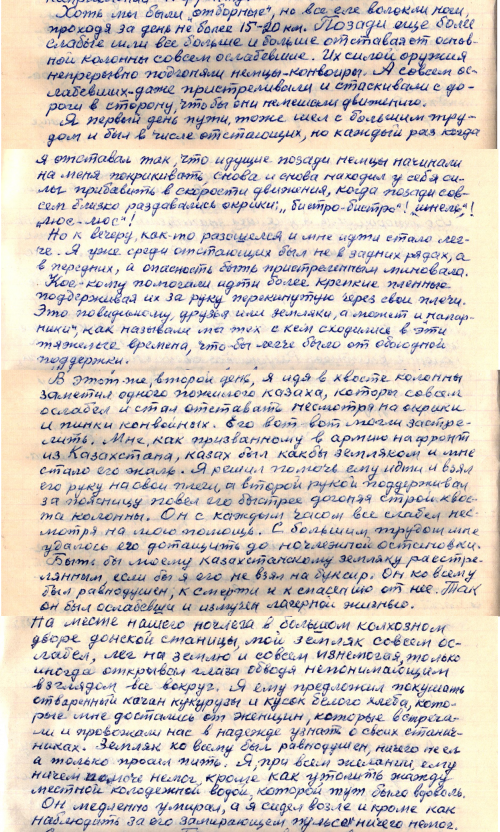 Хоть мы были „отборные“, но все еле волокли ноги,
проходя за день не более 15-20 км. Позади еще более
слабые шли все больше и больше отставая от основ-
ной колонны совсем ослабевшие. Их силой оружия
непрерывно подгоняли немцы-конвоиры. А совсем ос-
лабевших-даже пристреливали и стаскивали с до-
роги в сторону, что бы они не мешали движению.
Я первый день пути, тоже шел с большим тру-
дом и был в числе отстающих, но каждый раз когда
я отставал так, что идущие позади немцы начинали
на меня покрикивать, снова и снова находил у себя си-
лы прибавить в скорости движения, когда позади сов-
сем близко раздавались окрики: „бистро-бистро“! „шнель“!
„люс-люс“!
Но к вечеру, как-то разошелся и мне идти стало лег-
че. Я уже среди отстающих был не в задних рядах, а
в передних, и опасность быть пристреленным миновала.
Кое-кому помогали идти более крепкие пленные
поддерживая их за руку перекинутую через свои плечи.
Это повидимому, друзья или земляки, а может и напар-
ники“, как называли мы тех с кем сходились в эти
тяжелые времена, что-бы легче было от обоюдной
поддержки.
В этот-же, второй день, я идя в хвосте колонны
заметил одного пожилого казаха, которы совсем
ослабел и стал отставать несмотря на окрики
и пинки конвойных. Его вот вот могли застре-
лить. Мне, как призванному в армию на фронт
из Казахстана, казах был как бы земляком и мне
стало его жаль. Я решил помочь ему идти и взял
его руку на свои плечи, а второй рукой поддерживал
за поясницу повел его быстрее догоняя строй хвос-
та колонны. Он с каждым часом все слабел нес-
мотря на мою помощь. С большим трудом мне
удалось его дотащить до ночлежной остановки.
Быть бы моему казахстанскому земляку расстре-
лянным, если бы я его не взял на буксир. Он ко всему
был равнодушен, к смерти и к спасению от нее. Так
он был ослабевши и измучен лагерной жизнью.
На месте нашего ночлега в большом колхозном
дворе донской станицы, мой земляк совсем ос-
лабел, лег на землю и совсем изнемогая, только
иногда открывал глаза обводя непонимающим
взглядом все вокруг. Я ему предложил покушать
отваренный качан кукурузы и кусок белого хлеба, кото-
рые мне достались от женщин, которые встреча-
ли и провожали нас в надежде узнать о своих станич-
никах. Земляк ко всему был равнодушен, ничего не ел
а только просил пить. Я, при всем желании, ему
ничем помочь не мог, кроме как утолить жажду
местной колодежной водой, которой тут было вдоволь.
Он медленно умирал, а я сидел возле и кроме как
наблюдать за его замирающем пульсе ничего не мог.